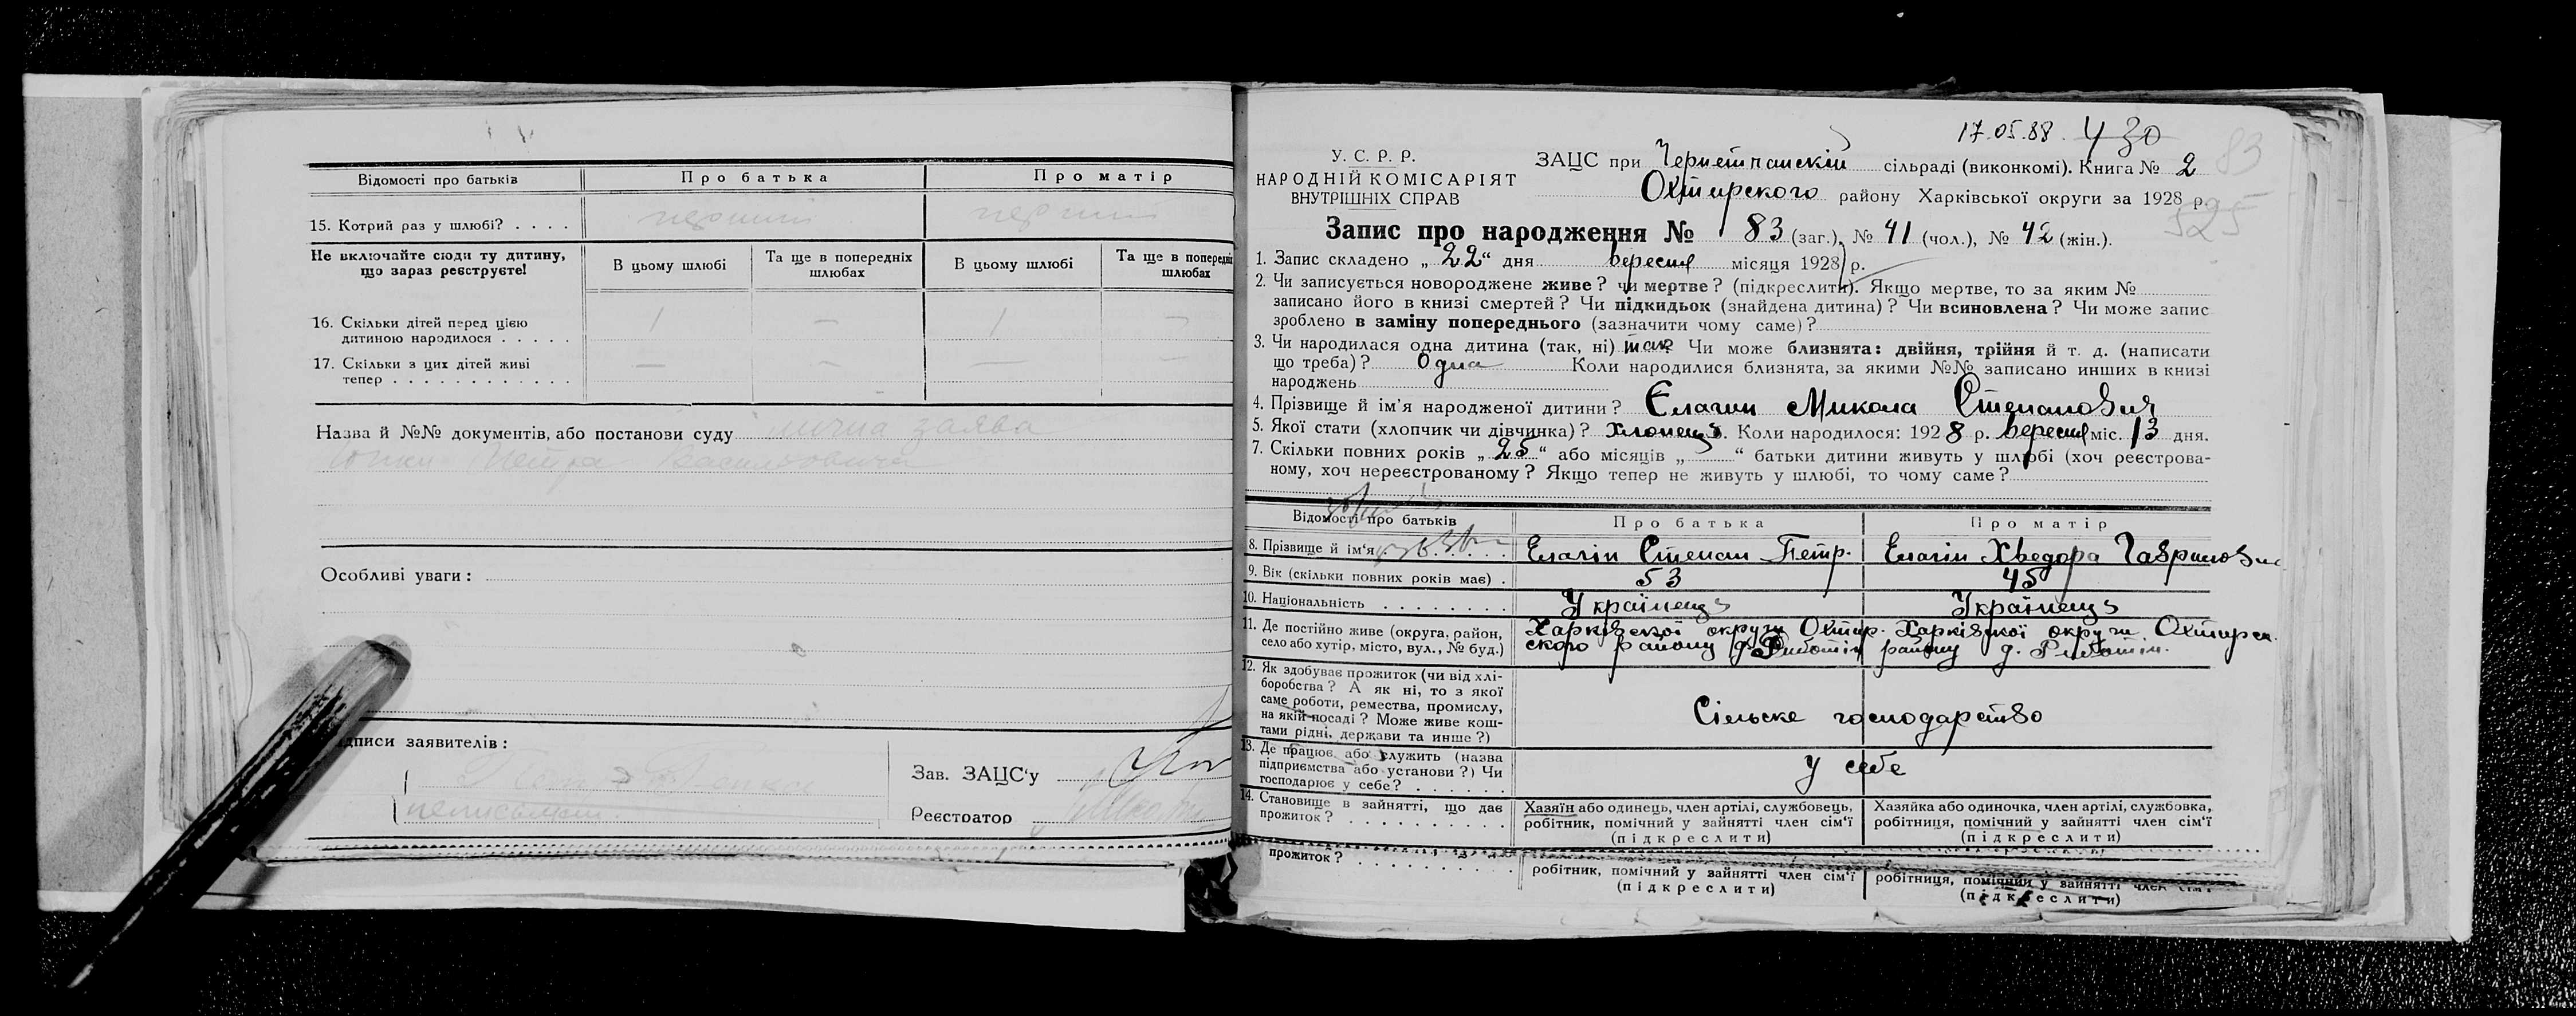 Відомості про батьків Про батька Про матір
15. Котрий раз у шлюбі? . . . . перший перший
Не включайте сюди ту дитину, що зараз реєструєте! В цьому шлюбі Та ще в попередніх шлюбах В цьому шлюбі Та ще в попередніх шлюбах
16. Скільки дітей перед цією
дитиною народилося . . . . . 1 — 1 —
17. Скільки з цих дітей живі
тепер . . . . . . . . . . . . — — — —
Назва й №№ документів, або постанови суду лична заява
Петра Васильовича
Особливі уваги:
дписи заявителів:
Зав. ЗАЦС'у
Реєстратор
17.05.88. 430
83
У. С. Р. Р.
НАРОДНІЙ КОМІСАРІЯТ
ВНУТРІШНІХ СПРАВ
ЗАЦС при Чернетчанскій сільраді (виконкомі). Книга № 2
Охтирского району Харківської округи за 1928 р.
525
Запис про народження № 83 (заг.), № 41 (чол.), № 42 (жін.).
1. Запис складено „ 22 “ дня вересня місяця 1928 р.
2. Чи записується новороджене живе? чи мертве? (підкреслити). Якщо мертве, то за яким №
записано його в книзі смертей? Чи підкидьок (знайдена дитина)? Чи всиновлена? Чи може запис
зроблено в заміну попереднього (зазначити чому саме)?
3. Чи народилася одна дитина (так, ні) так? Чи може близнята: двійня, трійня й т. д. (написати
що треба)? Одна Коли народилися близнята, за якими №№ записано инших в книзі
народжень
4. Прізвище й ім'я народженої дитини? Єлагин Микола Степановия
5. Якої стати (хлопчик чи дівчинка)? Хлопець. Коли народилося: 1928 р. вересня міс. 13 дня.
7. Скільки повних років „ 25 “ або місяців „ “ батьки дитини живуть у шлюбі (хоч реєстрова-
ному, хоч нереєстрованому? Якщо тепер не живуть у шлюбі, то чому саме?
Відомості про батьків Про батька Про матір
8. Прізвище й ім'я . . . . . . Елагін Степан Петр. Елагін Хведора Гаврилов
9. Вік (скільки повних років має) . 53 45
10. Національність . . . . . . . . Українець Українець
11. Де постійно живе (округа, район, Харківскої округи Охтир- Харківскої округи Охтирск.
село або хутір, місто, вул., № буд.) ского району д. Риботін району д. Риботін.
12. Як здобуває прожиток (чи від хлі-
боробства? А як ні, то з якої
саме роботи, ремества, промислу,
на якій посаді? Може живе кош-
тами рідні, держави та инше?)
Сільске господарство
13. Де працює або служить (назва
підприємства або установи?) Чи
господарює у себе? . . . . . .
У себе
14. Становище в зайнятті, що дає Хазяїн або одинець, член артілі, службовець, Хазяйка або одиночка, член артілі, службовка,
прожиток? . . . . . . . . . . робітник, помічний у зайнятті член сім'ї робітниця, помічний у зайнятті член сім'ї
(підкреслити) (підкреслити)
прожиток? . . . . . . . . . . робітник, помічний у зайнятті член сім'ї робітниця, помічний у зайнятті член сім'ї
(підкреслити) (підкреслити)